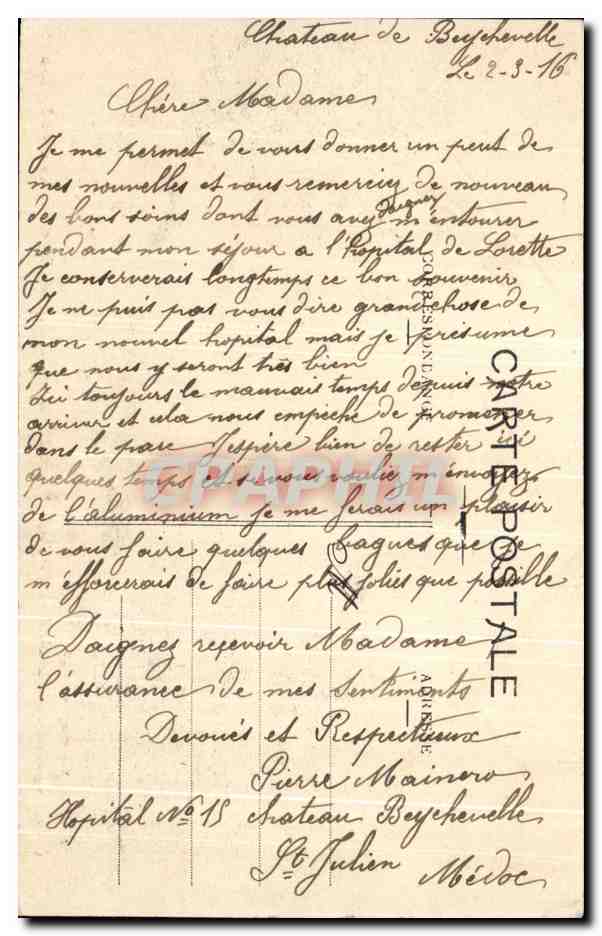 Chateau de Beychevelle
Le 2-3-16
Chére Madame
Je me permet de vous donner un peut de
mes nouvelles et vous remerciez de nouveau
des bons soins dont vous avez daignez m'entourer
pendant mon séjour a l'hopital de Lorette
Je conserverais longtemps ce bon souvenir
Je ne puis pas vous dire grandchose de
mon nouvel hopital mais je présume
que nous y seront très bien
Ici toujours le mauvais temps depuis notre
arriver et cela nous empèche de promener
dans le parc J'espère bien de rester ici
quelques temps et si vous vouliez m'envoyez
de l'aluminium je me ferais un plaisir
de vous faire quelques bagues que je
m'éfforcerais de faire plus jolies que posible
Daignez reçevoir Madame
l'assurance de mes Sentiments
Devoués et Respectueux
Pierre Mainero
Hopital No 15 chateau Beychevelle
St Julien
Médoc
CARTE POSTALE
CORRESPONDANCE
ADRESSE
CPAPHIL